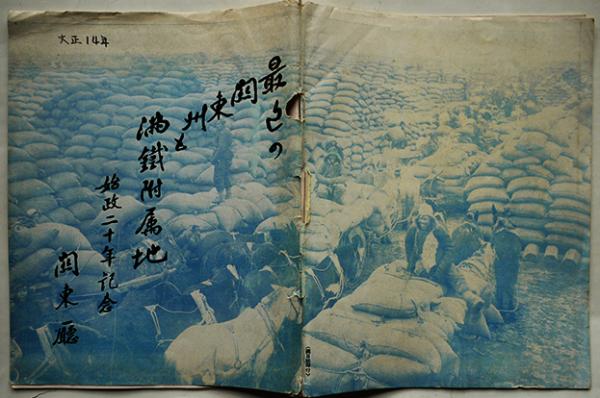 大正14年
最近の
関東
州と
満鉄附属地
始政二十年記念
関東廳